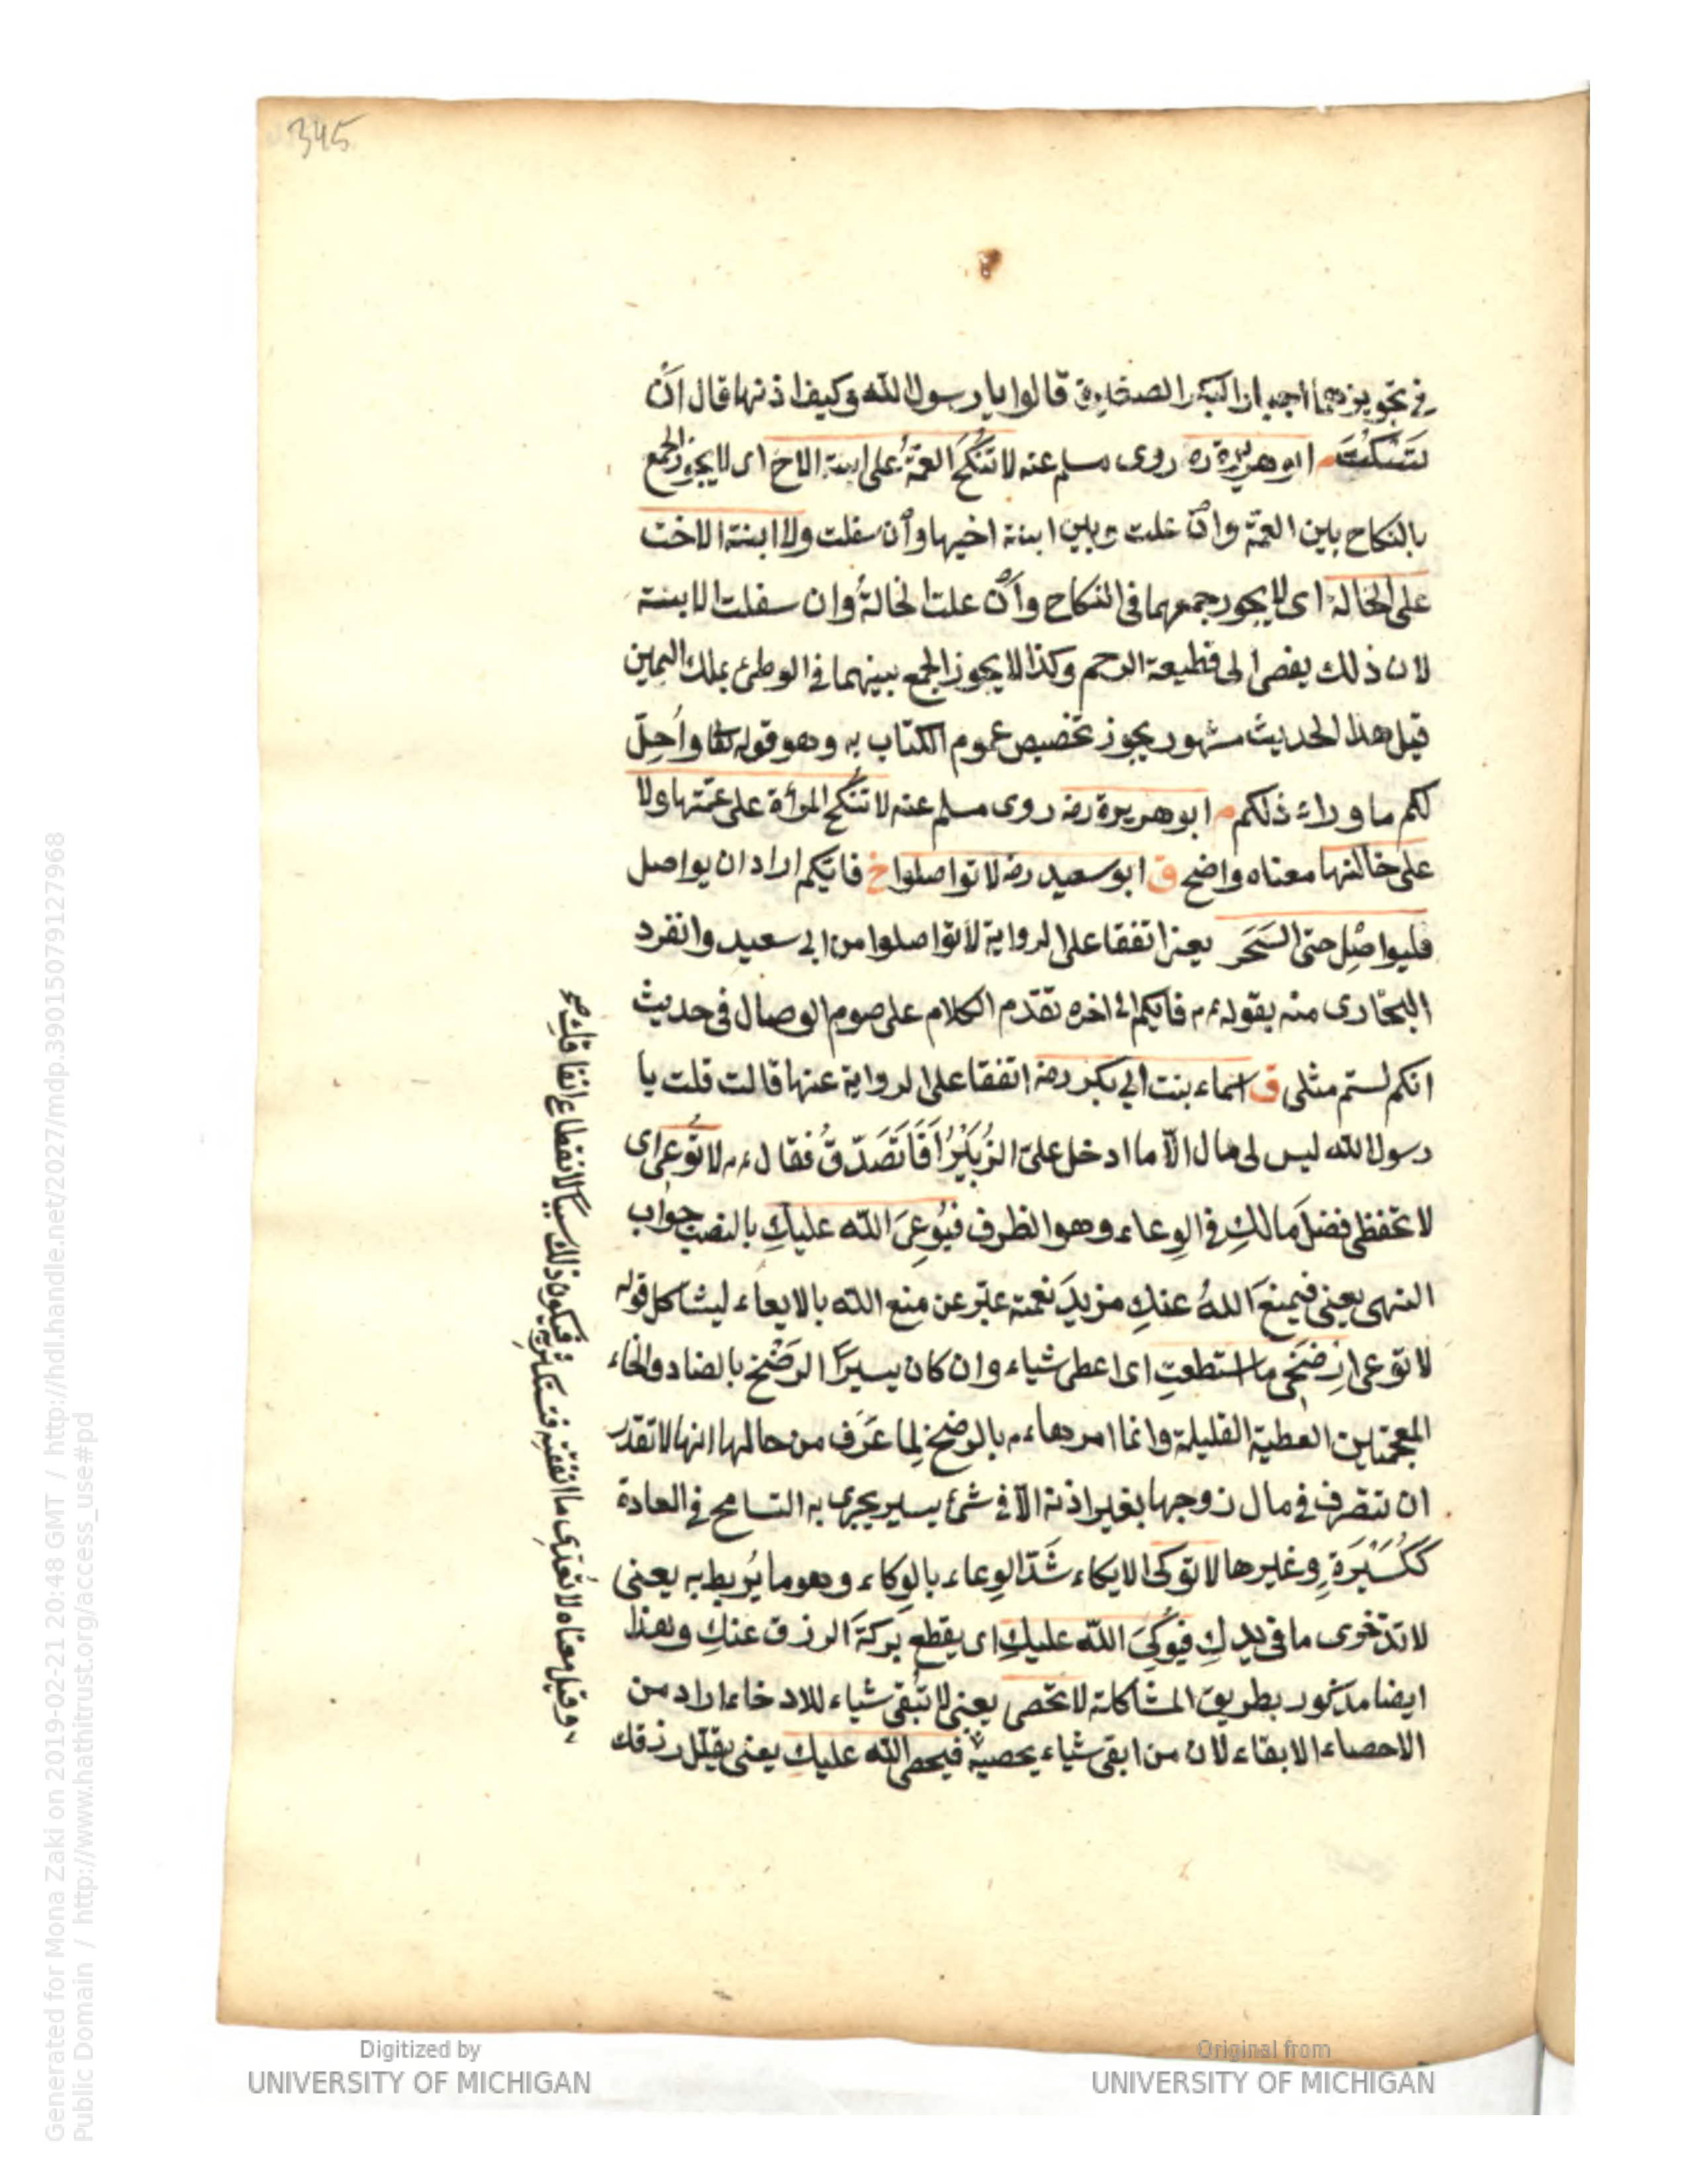 345
في تجويزهما اجبار البكر الصغيرة قالوا يا رسول الله وكيف اذنها قال اَن
تَسْكُتَ م ابو هريرة رض روى مسلم عنه لا تُنْكَحُ العمّةُ على ابنة الاخ اى لا يجوز الجمع
بالنكاح بين العمّة وان علت وبين ابنة اخيها وان سفلت ولا ابنة الاخت
على الخالة اى لا يجوز جمعهما في النكاح وان علت الخالةُ وان سفلت الابنة
لان ذلك يفضى الى قطيعة الرحم وكذا لا يجوز الجمع بينهما في الوطئ بملك اليمين
قيل هذا الحديث مشهور يجوز تخصيص عموم الكتاب به وهو قوله تعا واُحِلّ
لكم ما وراء ذلكم م ابو هريرة رض روى مسلم عنه لا تُنكح المرأة على عمّتها ولا
على خالتها معناه واضح ق ابو سعيد رض لا تواصلوا خ فايّكم اراد ان يواصل
فليواصِل حتى السَحَر يعنى اتفقا على الرواية لا تواصلوا من ابي سعيد وانفرد
البخارى منه بقوله ءم فايكم الى اخره تقدّم الكلام على صوم الوصال في حديث
انكم لستم مثلى ق اسماء بنت ابي بكر رض اتفقا على الرواية عنها قالت قلت يا
رسول الله ليس لى مال الّا ما ادخل علىّ الزُبَيْرُ اَفَاَتَصَدّقُ فقال ءم لا تُوعى اى
لا تحفظى فضلَ مالكِ في الوِعاء وهو الظرف فيُوعِىَ الله عليكِ بالنصب جواب
النهى يعنى فيمنعَ اللهُ عنكِ مزيدَ نعمته عبّر عن منع الله بالايعاء ليشاكل قوله
لا توعى اِرضَخى ما استطعتِ اى اعطى شياء وان كان يسيرًا الرَضْخ بالضاد والخاء
المعجمتين العطية القليلة وانما امرها ءم بالرضخ لِما عَرَف من حالها انها لا تقدر
ان تتصرف في مال زوجها بغير اذنه الّا في شئ يسير يجرى به التسامح في العادة
ككُسَيْرَةٍ وغيرها لا توكى الايكاء شَدّ الوِعاء بالوِكاء وهو ما يُربط به يعنى
لا تدّخرى ما في يدكِ فيُوكِىَ الله عليكِ اى يقطع بَركةَ الرزق عنكِ وهذا
ايضا مذكور بطريق المشاكلة لا تحصى يعنى لا تُبقى شياء للادخار اراد من
الاحصاء الابقاء لان من ابقى شياء يحصيه فيحصى الله عليك يعنى يقلّل رزقك
وقيل معناه لا تعُدّى ما انفقتِه فتستكثريه فيكون ذلك سببا لانقطاع انفاقكِ صح
Digitized by
UNIVERSITY OF MICHIGAN
Original from
UNIVERSITY OF MICHIGAN
Generated for Mona Zaki on 2019-02-21 20:48 GMT / http://hdl.handle.net/2027/mdp.39015079127968
Public Domain / http://www.hathitrust.org/access_use#pd